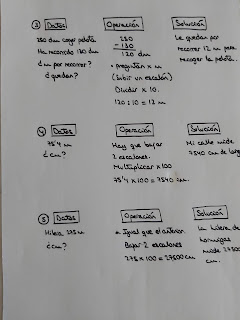 ③ Datos Operación Solución
250 dm coger pelota
Ha recorrido 130 dm
d m por recorrer?
d quedan?
250
- 130
120 dm
• preguntan x m
(Subir un escalón)
Dividir x 10.
120 : 10 = 12 m
Le quedan por
recorrer 12 m para
recoger la pelota.
④ Datos Operación Solución
75'4 m
d cm?
Hay que bajar
2 escalones.
Multiplicar x 100
75'4 x 100 = 7540 cm.
Mi calle mide
7540 cm de largo
⑤ Datos Operación Solución
Hilera 275 m
d cm?
Igual que el anterior.
Bajar 2 escalones
275 x 100 = 27500 cm
La hilera de
hormigas
mide 27500
cm.